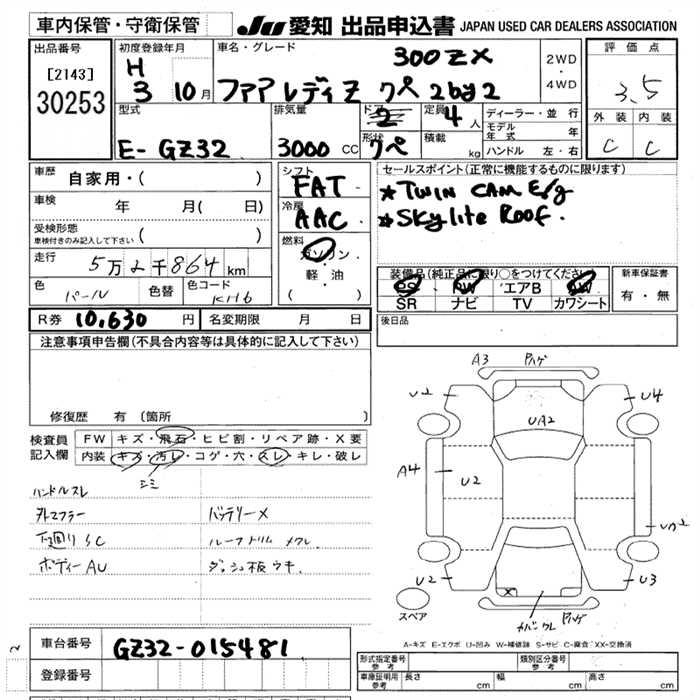 車内保管・守衛保管
JU 愛知 出品申込書 JAPAN USED CAR DEALERS ASSOCIATION
出品番号
[2143]
30253
初度登録年月
H 3 10月
車名・グレード
300ZX
フェアレディZ クペ 2by2
2WD
・
4WD
評価点
3.5
外装 内装
C C
型式
E-GZ32
排気量
3000 CC
ドア
2
形状
クペ
定員
4人
積載
kg
ディーラー・並行
モデル年式 年
ハンドル 左・右
車歴
自家用・( )
車検
年 月( 日)
受検形態
車検付きのみ記入して下さい ( )
走行
5万2千864km
色
パール
色替
色コード
KH6
シフト
FAT
冷房
AAC
燃料
ガソリン
・
軽・油
( )
セールスポイント(正常に機能するものに限ります)
*TWIN CAM E/g
*Skylite Roof.
装備品(純正品に限り○をつけてください)
PS PW エアB AW
SR ナビ TV カワシート
新車保証書
有・無
R券 10,630 円
名変期限 月 日
後日品
注意事項申告欄(不具合内容等は具体的に記入して下さい)
修復歴 有〔箇所 〕
検査員
記入欄
FW キズ・飛石・ヒビ割・リペア跡・X要
内装 キズ・汚レ・コゲ・穴・スレ・キレ・破レ
シミ
ハンドルスレ
外マフラー バッテリーX
下廻りSC ルーフトリム メクレ
ボディーAU ダッシュ板ウキ.
A3 Pハゲ
U2
U4
UA2
A4
U2
U2
U3
スペア
カバンクレ
Pハゲ
A-キズ E-エクボ U-凹み W-補修跡 S-サビ C-腐食 XX-交換済
車台番号
GZ32-015481
登録番号
2
形式指定番号
参考
類別区分番号
参考
車庫証明用
参考
長さ cm 幅 cm 高さ cm